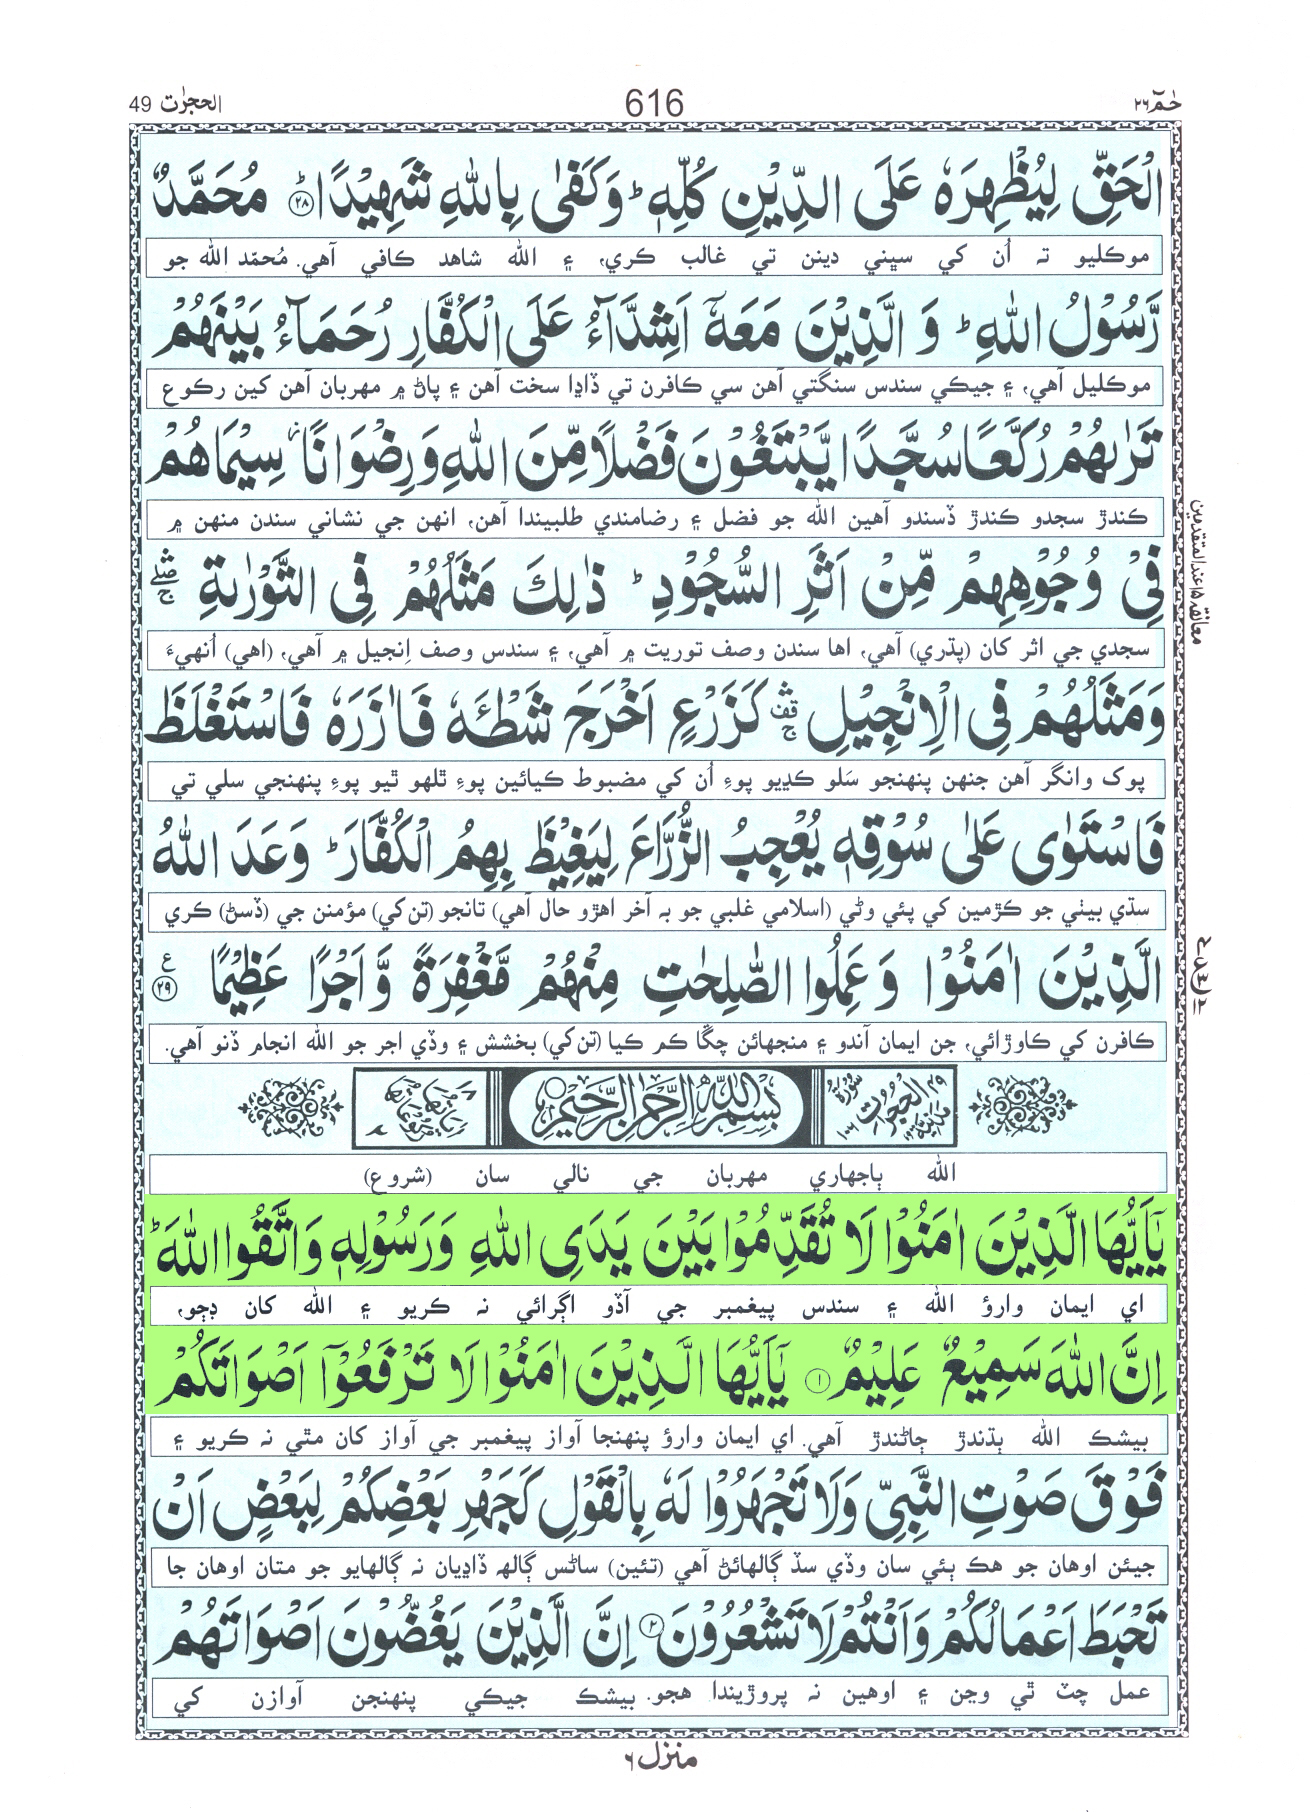 الحجرٰت 49
616
حٰمٓ ٢٦
الْحَقِّ لِيُظْهِرَهٗ عَلَى الدِّيْنِ كُلِّهٖ ؕ وَكَفٰى بِاللّٰهِ شَهِيْدًا ؕ ﴿٢٨﴾ مُحَمَّدٌ
موڪليو تہ اُن کي سڀني دينن تي غالب ڪري، ۽ الله شاهد ڪافي آهي. مُحمّد الله جو
رَّسُوْلُ اللّٰهِ ؕ وَ الَّذِيْنَ مَعَهٗۤ اَشِدَّآءُ عَلَى الْكُفَّارِ رُحَمَآءُ بَيْنَهُمْ
موڪليل آهي، ۽ جيڪي سندس سنگتي آهن سي ڪافرن تي ڏاڍا سخت آهن ۽ پاڻ ۾ مهربان آهن کين رڪوع
تَرٰىهُمْ رُكَّعًا سُجَّدًا يَّبْتَغُوْنَ فَضْلًا مِّنَ اللّٰهِ وَرِضْوَانًا ز سِيْمَاهُمْ
ڪندڙ سجدو ڪندڙ ڏسندو آهين الله جو فضل ۽ رضامندي طلبيندا آهن، انهن جي نشاني سندن منهن ۾
فِيْ وُجُوْهِهِمْ مِّنْ اَثَرِ السُّجُوْدِ ؕ ذٰلِكَ مَثَلُهُمْ فِى التَّوْرٰىةِ ۛۖۚ
سجدي جي اثر کان (پڌري) آهي، اها سندن وصف توريت ۾ آهي، ۽ سندس وصف اِنجيل ۾ آهي، (اهي) اُنهيءَ
وَمَثَلُهُمْ فِى الْاِنْجِيْلِ ۛۚ كَزَرْعٍ اَخْرَجَ شَطْـَٔهٗ فَاٰزَرَهٗ فَاسْتَغْلَظَ
پوک وانگر آهن جنهن پنهنجو سَلو ڪڍيو پوءِ اُن کي مضبوط ڪيائين پوءِ ٿلهو ٿيو پوءِ پنهنجي سلي تي
فَاسْتَوٰى عَلٰى سُوْقِهٖ يُعْجِبُ الزُّرَّاعَ لِيَغِيْظَ بِهِمُ الْكُفَّارَ ؕ وَعَدَ اللّٰهُ
سڌي بيٺي جو ڪڙمين کي پئي وڻي (اسلامي غلبي جو بہ آخر اهڙو حال آهي) تانجو (تن کي) مؤمنن جي (ڏسڻ) ڪري
الَّذِيْنَ اٰمَنُوْا وَعَمِلُوا الصّٰلِحٰتِ مِنْهُمْ مَّغْفِرَةً وَّاَجْرًا عَظِيْمًا ﴿٢٩﴾ ع
ڪافرن کي ڪاوڙائي، جن ايمان آندو ۽ منجهائن چڱا ڪم ڪيا (تن کي) بخشش ۽ وڏي اجر جو الله انجام ڏنو آهي.
٤٩ سُوْرَةُ الْحُجُرٰتِ مَدَنِيَّةٌ ١٠٦
بِسْمِ اللّٰهِ الرَّحْمٰنِ الرَّحِيْمِ
الله ٻاجهاري مهربان جي نالي سان (شروع)
يٰۤاَيُّهَا الَّذِيْنَ اٰمَنُوْا لَا تُقَدِّمُوْا بَيْنَ يَدَىِ اللّٰهِ وَرَسُوْلِهٖ وَاتَّقُوا اللّٰهَ ؕ
اي ايمان وارؤ الله ۽ سندس پيغمبر جي آڏو اڳرائي نہ ڪريو ۽ الله کان ڊڄو،
اِنَّ اللّٰهَ سَمِيْعٌ عَلِيْمٌ ﴿١﴾ يٰۤاَيُّهَا الَّذِيْنَ اٰمَنُوْا لَا تَرْفَعُوْۤا اَصْوَاتَكُمْ
بيشڪ الله ٻڌندڙ ڄاڻندڙ آهي. اي ايمان وارؤ پنهنجا آواز پيغمبر جي آواز کان مٿي نہ ڪريو ۽
فَوْقَ صَوْتِ النَّبِيِّ وَلَا تَجْهَرُوْا لَهٗ بِالْقَوْلِ كَجَهْرِ بَعْضِكُمْ لِبَعْضٍ اَنْ
جيئن اوهان جو هڪ ٻئي سان وڏي سڏ ڳالهائڻ آهي (تئين) ساڻس ڳالھ ڏاڍيان نہ ڳالهايو جو متان اوهان جا
تَحْبَطَ اَعْمَالُكُمْ وَاَنْتُمْ لَا تَشْعُرُوْنَ ﴿٢﴾ اِنَّ الَّذِيْنَ يَغُضُّوْنَ اَصْوَاتَهُمْ
عمل چٽ ٿي وڃن ۽ اوهين نہ پروڙيندا هجو. بيشڪ جيڪي پنهنجن آوازن کي
منزل ٦
معانقه ١٥ عند المتقدمين